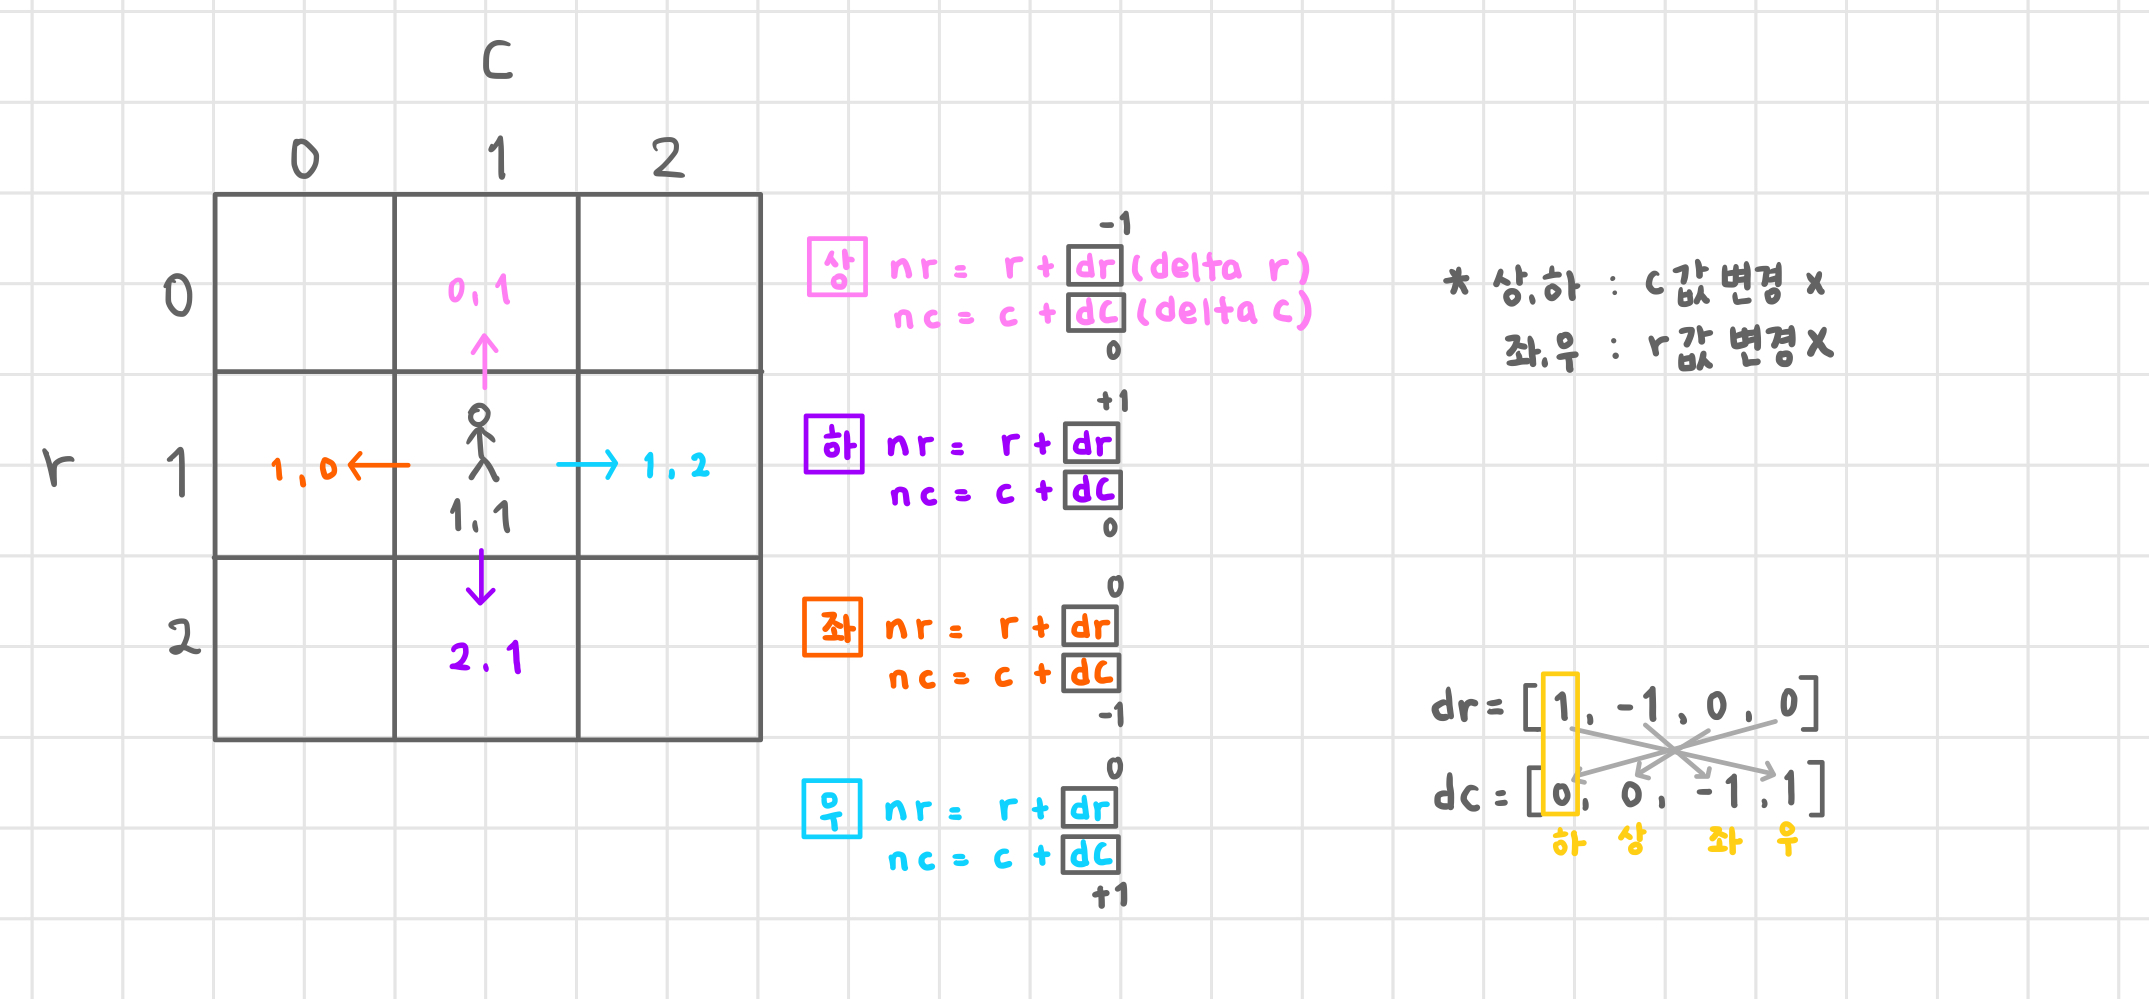 C
0 1 2
0
0,1
r
1
1,0
1,2
1,1
2
2,1
-1
상 nr = r + dr (delta r)
nc = c + dc (delta c)
0
+1
하 nr = r + dr
nc = c + dc
0
0
좌 nr = r + dr
nc = c + dc
-1
0
우 nr = r + dr
nc = c + dc
+1
* 상,하 : c값 변경 x
좌,우 : r값 변경 x
dr = [1, -1, 0, 0]
dc = [0, 0, -1, 1]
하 상 좌 우